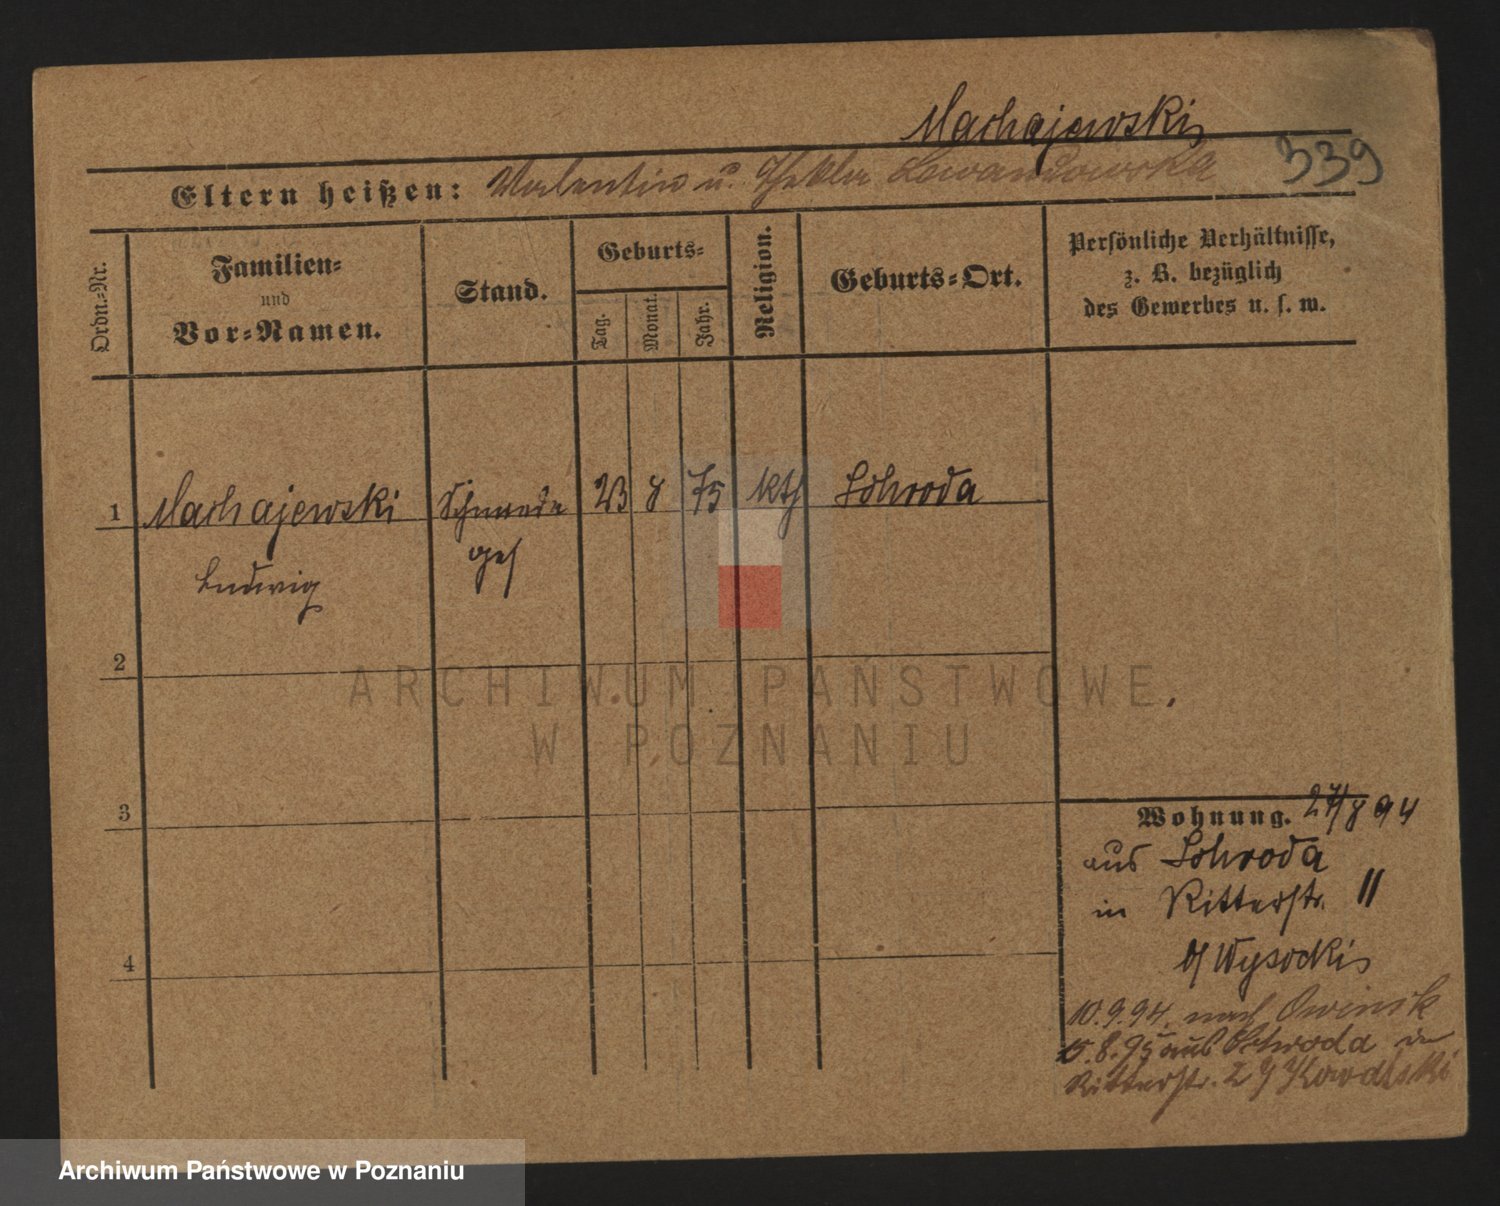 Machajewski
339
Eltern heißen: Valentin u. Thekla Lewandowska
Ordn.-Nr.
Familien-
und
Vor-Namen.
Stand.
Geburts-
Tag.
Monat.
Jahr.
Religion.
Geburts-Ort.
Persönliche Verhältnisse,
z. B. bezüglich
des Gewerbes u. s. w.
1 Machajewski 23 8 75 kth Schroda
Ludwig ges
2
3
4
Wohnung. 27/8 94
aus Schroda
in Ritterstr. 11
b/ Wysocki
10.9.94. nach Owinsk
15.8.95 aus Schroda in
Ritterstr. 2
ARCHIWUM PAŃSTWOWE
W POZNANIU
Archiwum Państwowe w Poznaniu